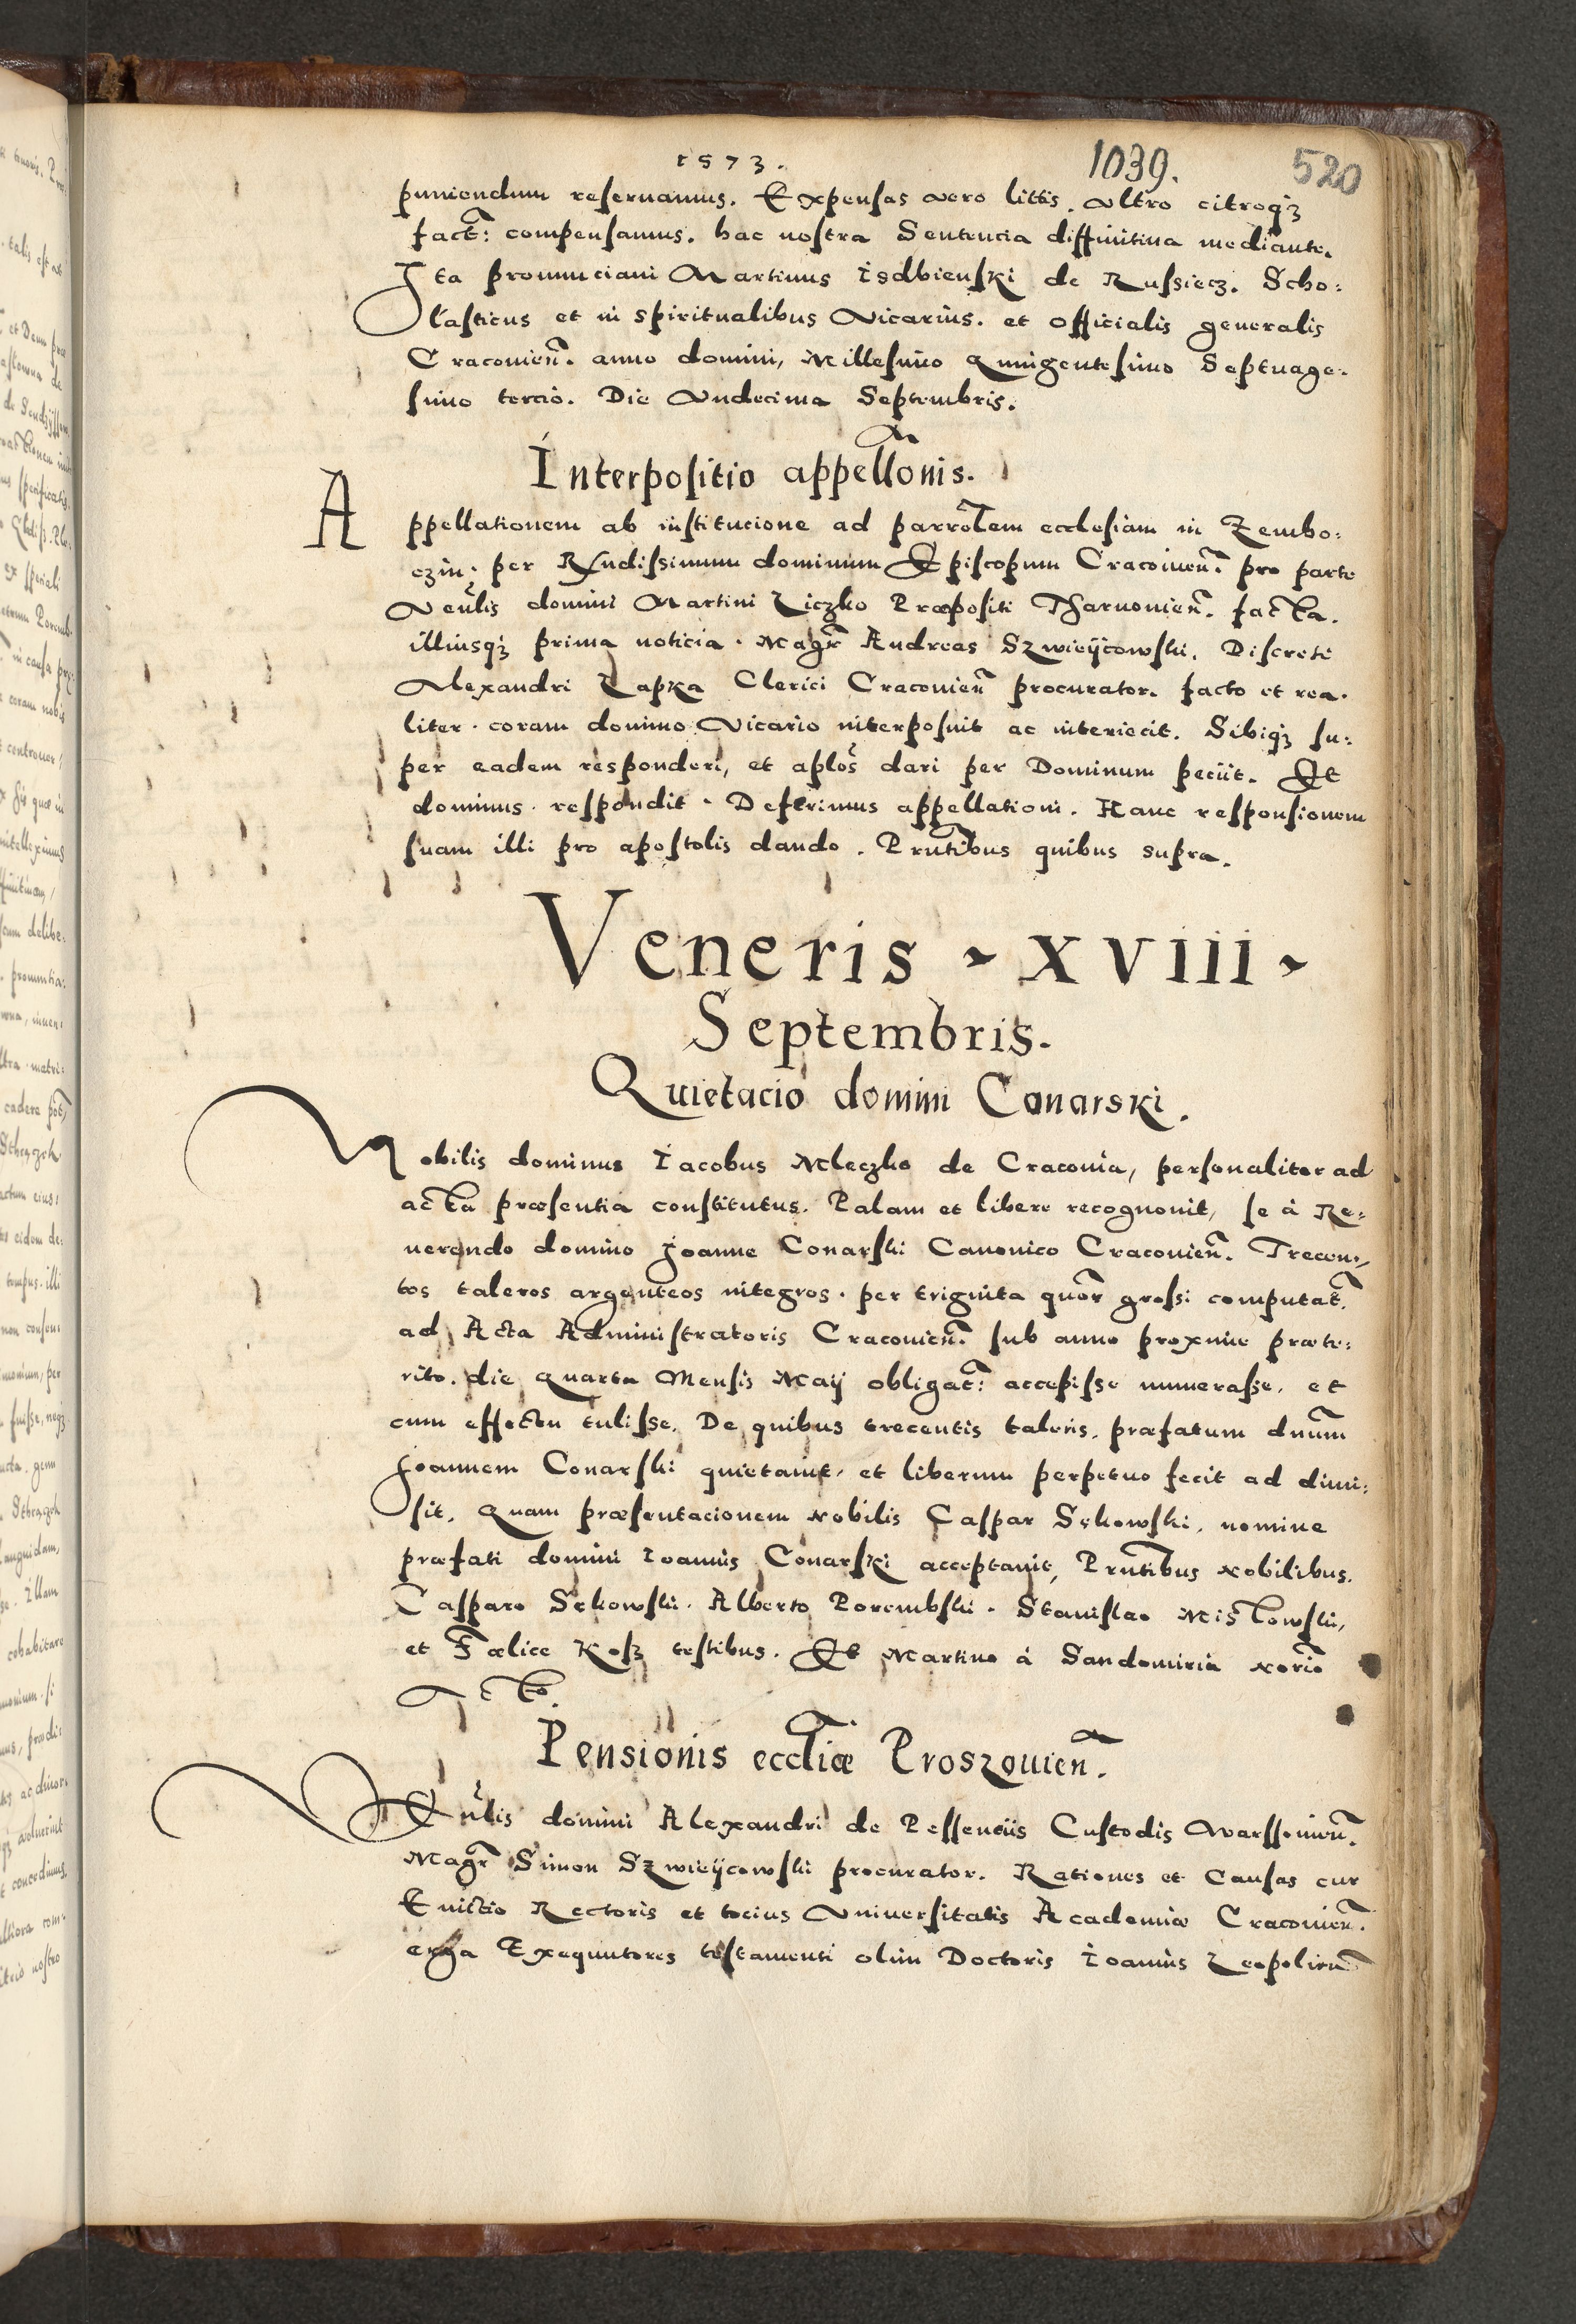 1573.
1039.
520
puniendum reseruamus. Expensas vero littis. vltro citroqȝ
fact: compensamus. hac nostra Sentencia diffinitiua mediante.
Ita pronunciaui Martinus Isdbienski de Russiecz. Scho:
lasticus et in spiritualibus Vicarius. et officialis generalis
Craconien̄. anno domini, Millesimo Quingentesimo Septuage-
simo tercio. Die Vndecima Septembris.
Interpositio appellōnis.
Appellationem ab institucione ad parrōlem ecclesiam in Zembo:
czin. per Rn̄dissimum dominum Episcopum Craconien̄. pro parte
Ven̄lis domini Martini Liczko Præpositi Tharnonien̄. facta.
illiusqȝ prima noticia. Magr̄ Andreas Szwieÿcowski. Discreti
Alexandri Lapka Clerici Craconien̄ procurator. facto et rea-
liter. coram domino Vicario interposuit ac interiecit. Sibiqȝ su:
per eadem responderi, et aplōs dari per Dominum peciit. Et
dominus. respondit. Deferimus appellationi. Hanc responsionem
suam illi pro apostolis dando. Prn̄tibus quibus supra.
Veneris - XVIII -
Septembris.
Quietacio domini Conarski.
Nobilis dominus Iacobus Mleczko de Craconia, personaliter ad
acta præsentia constitutus. Palam et libere recognouit, se à Re:
uerendo domino Joanne Conarski Canonico Craconien̄. Trecen:
tos taleros argenteos integros. per triginta quor̄ grossi computat̄.
ad Acta Administratoris Craconien̄. sub anno proxime præte:
rito. die Quarta Mensis Maÿ obligat̄: accepisse numerasse, et
cum effectu tulisse. De quibus trecentis taleris. præfatum dnūm
Joannem Conarski quietauit, et liberum perpetuo fecit ad dimi:
sit. Quam præsentacionem nobilis Caspar Sękowski. nomine
præfati domini Ioannis Conarski acceptauit, Prn̄tibus nobilibus.
Casparo Sękowski. Alberto Porembski. Stanislao Miskowski,
et Fælice Kosz testibus. Et Martino à Sandomiria norīo
Acto.
Pensionis eccl̄iæ Proszouien̄.
Ven̄lis domini Alexandri de Pessenciis Custodis Warssouien̄.
Magr̄ Simon Szwieÿcowski procurator. Rationes et Causas cur
Euictio Rectoris et tocius Vniuersitatis Academiæ Craconien̄.
erga Exequutores testamenti olim Doctoris Ioannis Leopolien̄